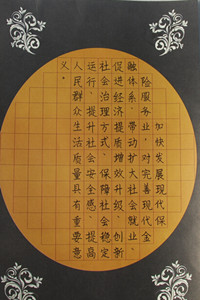 加快发展现代保
险服务业，对完善现代金
融体系、带动扩大社会就业、
促进经济提质增效升级、创新
社会治理方式、保障社会稳定
运行、提升社会安全感、提高
人民群众生活质量具有重要意
义。